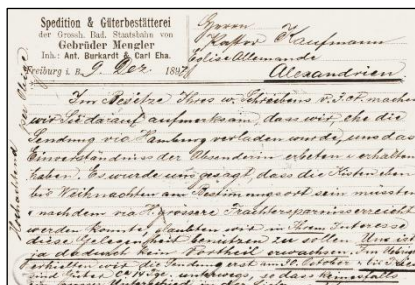 Spedition & Güterbestätterei
der Grossh. Bad. Staatsbahn von
Gebrüder Mengler
Inh.: Ant. Burkardt & Carl Eha.
Freiburg i. B. 9. Dez. 1897
Herrn
Pastor Kaufmann
Eglise Allemande
Alexandrien
Im Besitze Ihres w. Schreibens v. 3. ct. machen
wir Sie darauf aufmerksam, dass wir, ehe die
Sendung via Hamburg verladen wurde, uns das
Einverständniss der Absenderin erbeten & erhalten
haben. Es wurde uns gesagt, dass die Kistchen
bis Weihnachten am Bestimmungsort sein müssten
& nachdem via H. grössere Frachtersparniss erreicht
werden konnte, glaubten wir in Ihrem Interesse
diese Gelegenheit benützen zu sollen. Uns ist
ja dadurch kein Vortheil erwachsen. Im Übrigen
erhielten wir die Sendung erst am 12. October &
sind Güter unterwegs, so dass keinesfalls